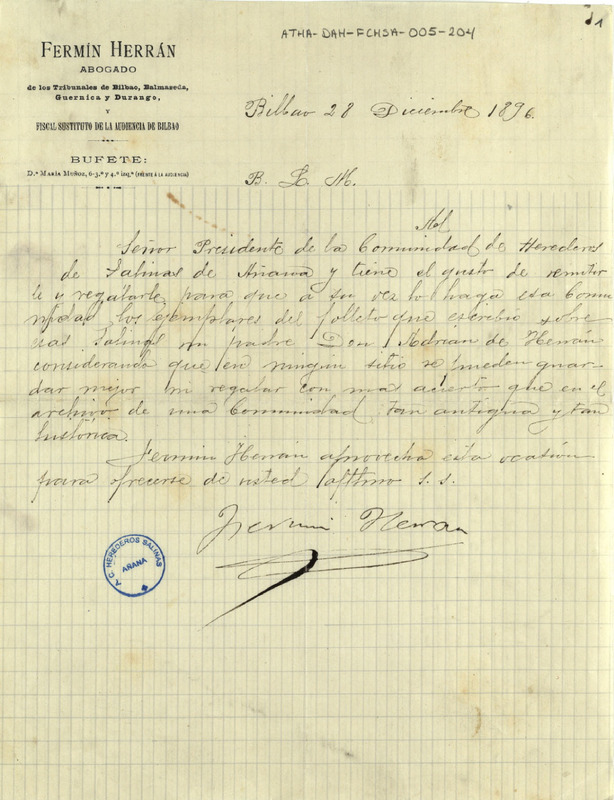 ATHA-DAH-FCHSA-005-204
FERMÍN HERRÁN
ABOGADO
de los Tribunales de Bilbao, Balmaseda,
Guernica y Durango,
Y
FISCAL SUSTITUTO DE LA AUDIENCIA DE BILBAO
BUFETE:
D.ª MARÍA MUÑOZ, 6-3.º y 4.º izq.ª (FRENTE Á LA AUDIENCIA)
Bilbao 28 Diciembre 1896.
B. L. M.
Al
Señor Presidente de la Comunidad de Herederos
de Salinas de Añana y tiene el gusto de remitir
le y regalarle, para que a su vez lo haga esa Comu
nidad los ejemplares del folleto que escribio sobre
esas Salinas mi padre Don Adrián de Herrán
considerando que en ningun sitio se pueden guar-
dar mejor ni regalar con mas acierto que en el
archivo de una Comunidad tan antigua y tan
historica.
Fermin Herran aprovecha esta ocasión
para ofrecerse de usted affmo s. s.
Fermin Herran
Y. G. HEREDEROS SALINAS
AÑANA